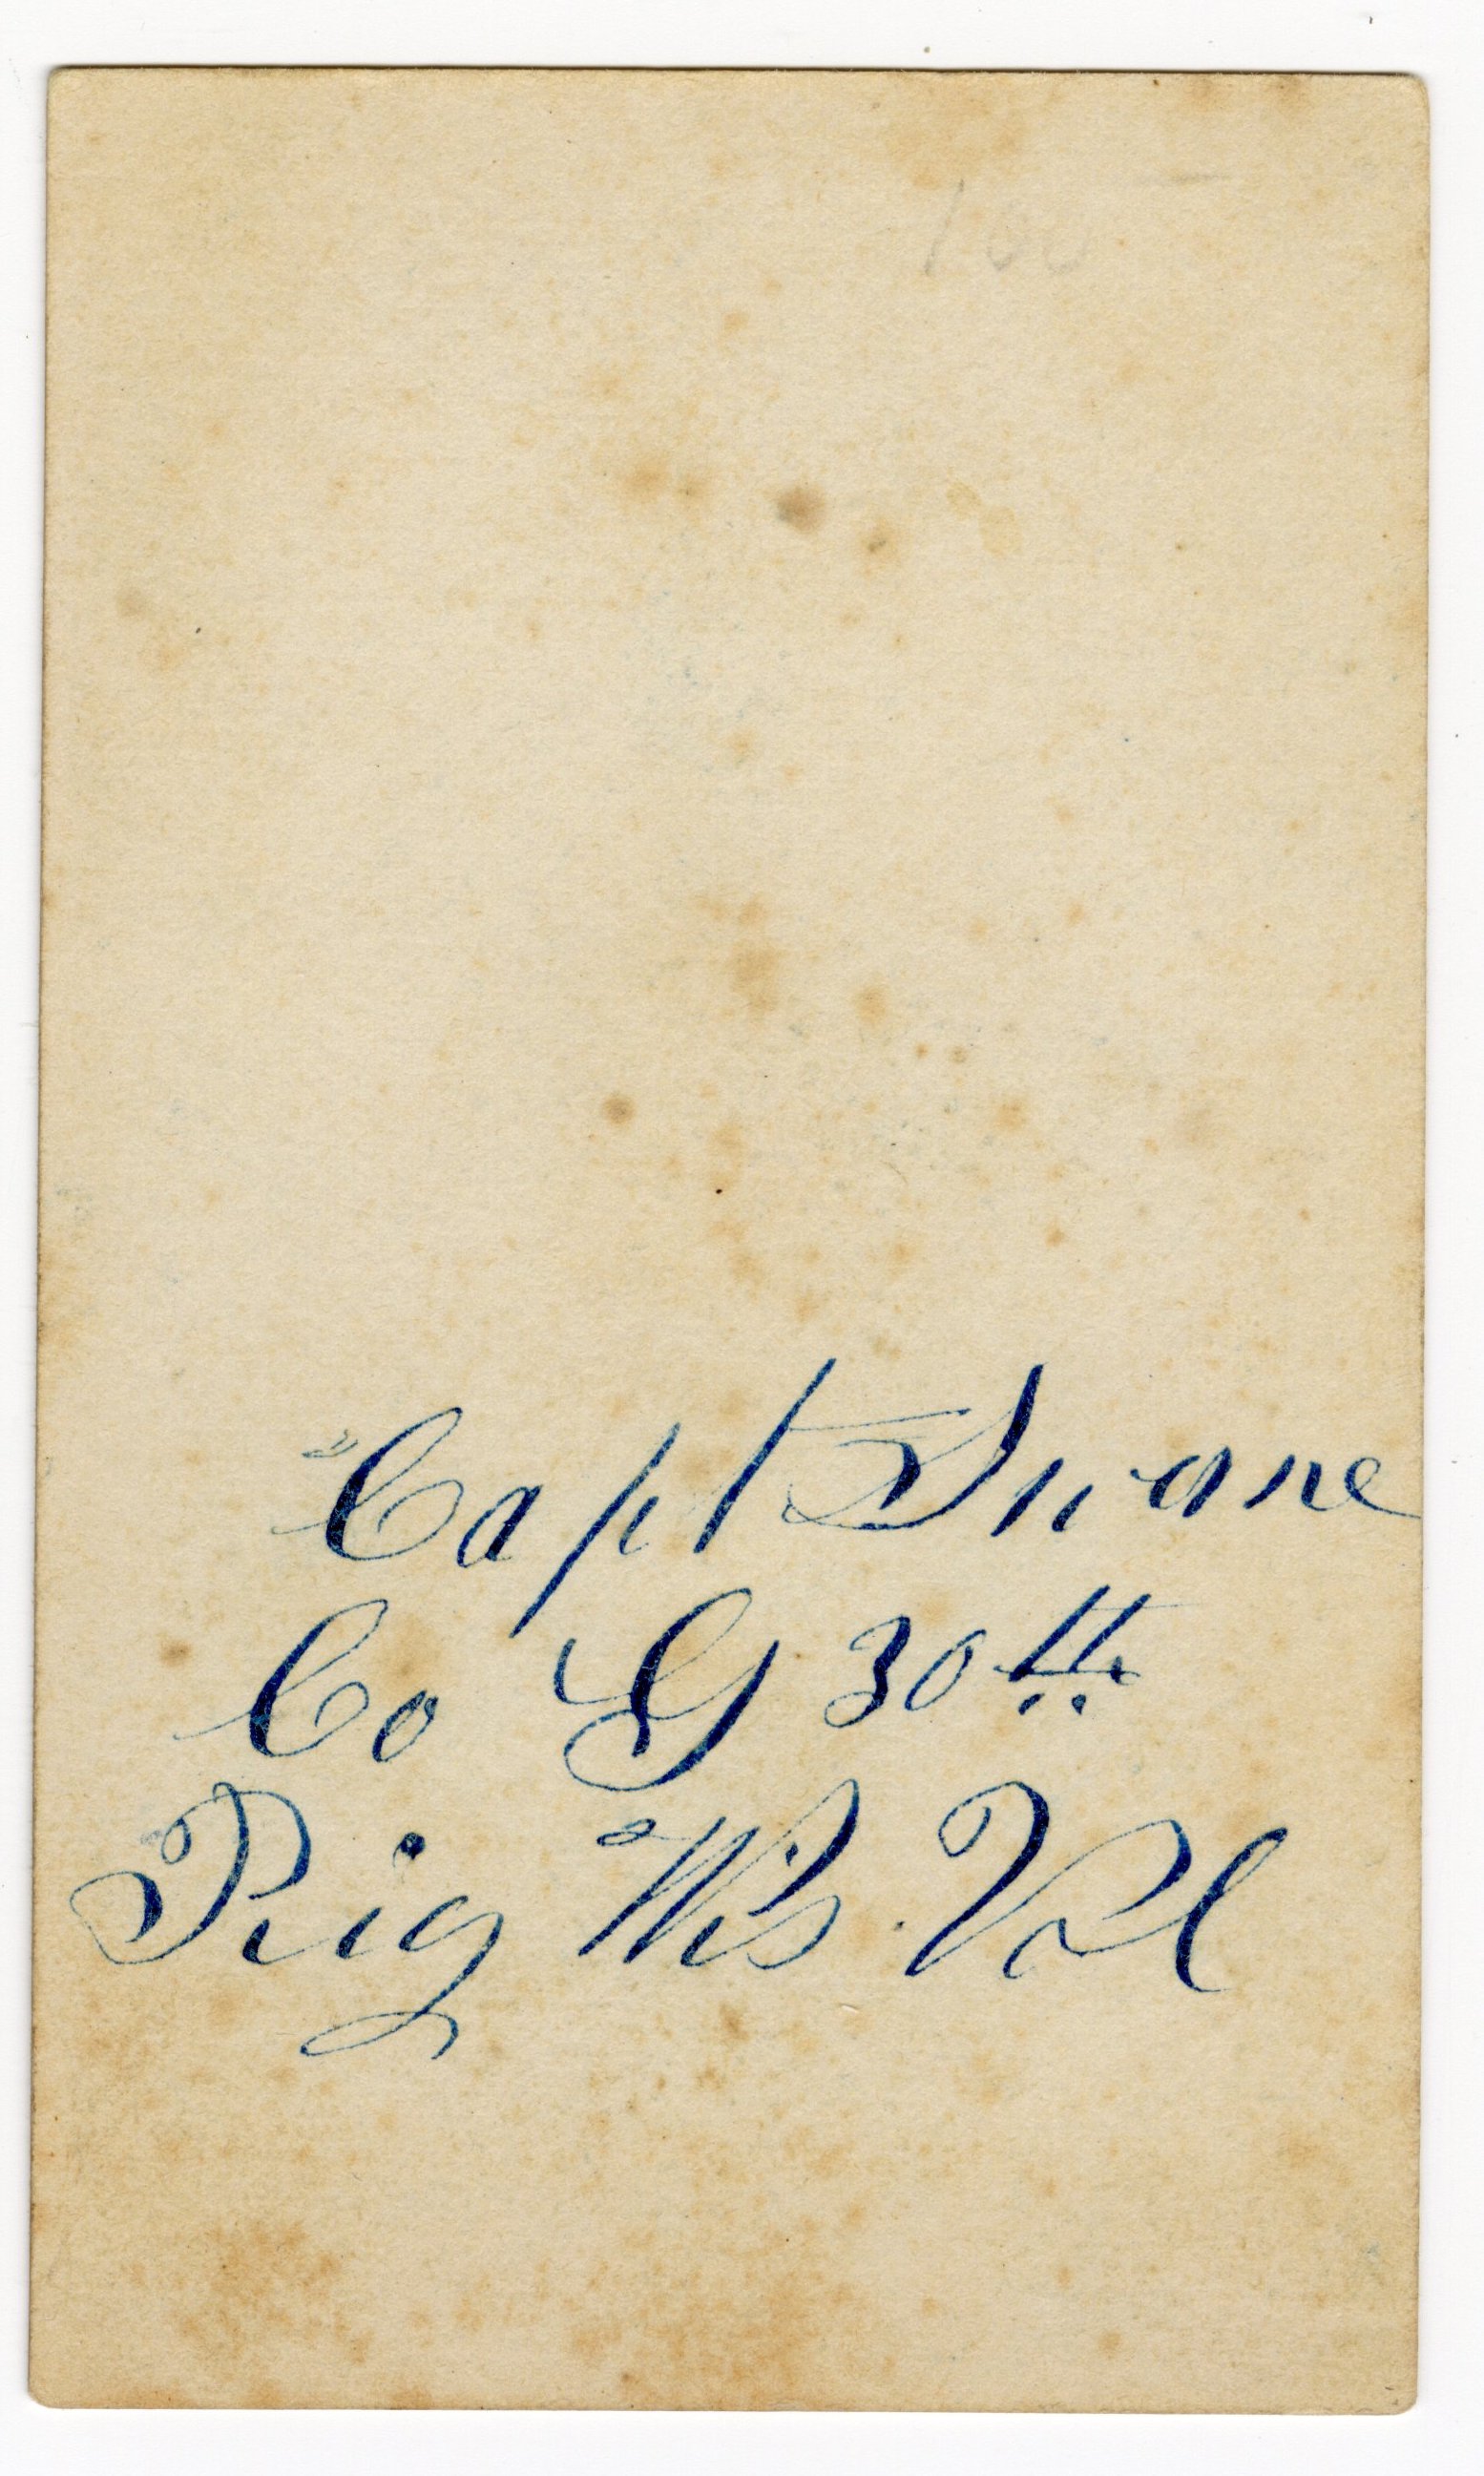 100
Capt Swane
Co G 30th
Reig Wis Vol